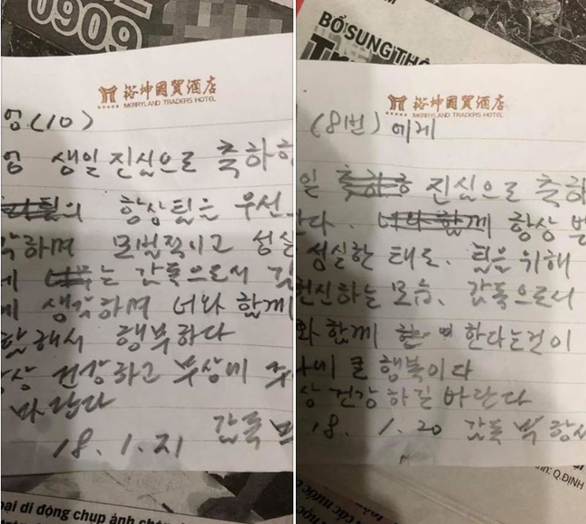 0909
裕坤國貿酒店
MERRYLAND TRADERS HOTEL
엉(10)
엉 생일 진심으로 축하하
항상 팀을 우선
각하며 모범적이고 성실
는 감독으로서 깊
게 생각하며 너와 함께
해서 행복하다
상 건강하고 부상이
바란다
18.1.21 감독
ại di động chụp ảnh
BỔ SUNG
裕坤國貿酒店
MERRYLAND TRADERS HOTEL
(8번) 에게
일 진심으로 축하
다. 너와 함께 항상
성실한 태로, 팀을 위해
헌신하는 모습, 감독으로서
와 함께 한다는것이
큰 행복이다
상 건강하길 바란다
18. 1.20 감독 박항서
Q.ĐỊNH